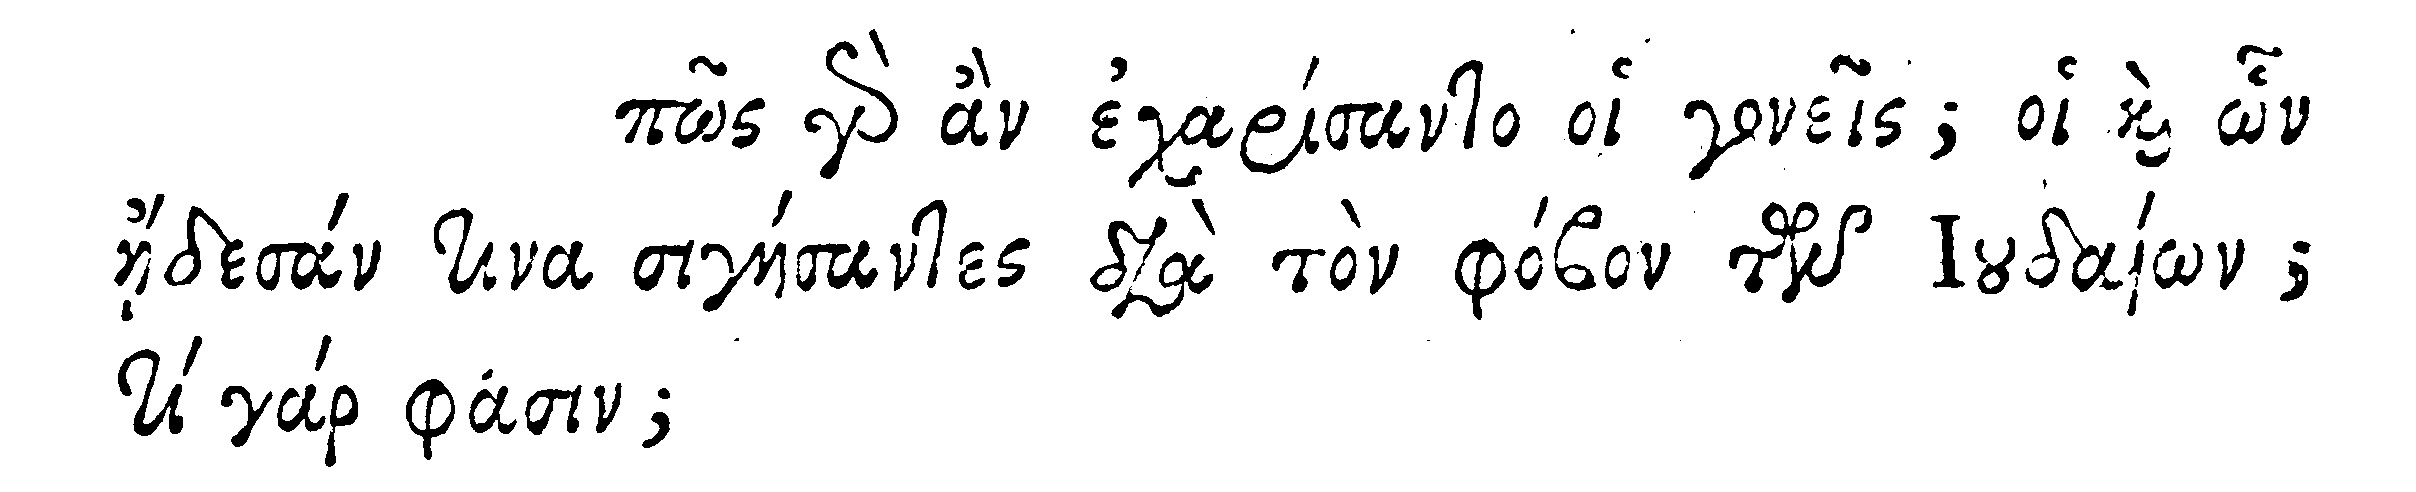 πῶς γὰρ ἂν ἐχαρίσαντο οἱ γονεῖς; οἱ καὶ ὧν
ᾔδεσάν τινα σιγήσαντες διὰ τὸν φόβον τῶν Ιουδαίων;
τί γάρ φάσιν;